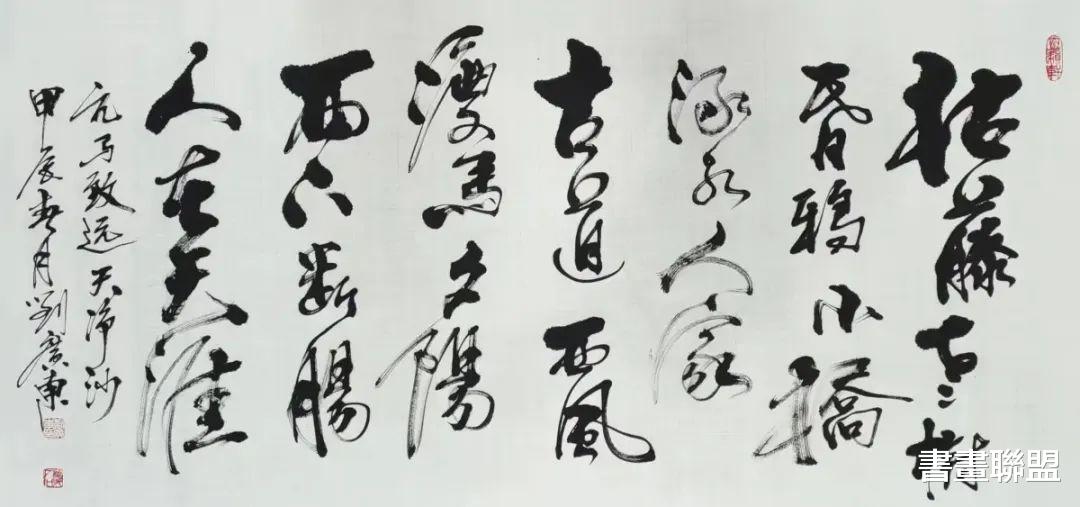 枯藤老樹
昏鴉小橋
流水人家
古道西風
瘦馬夕陽
西下斷腸
人在天涯
元马致远天净沙
甲辰春月劉廣東
書畫聯盟